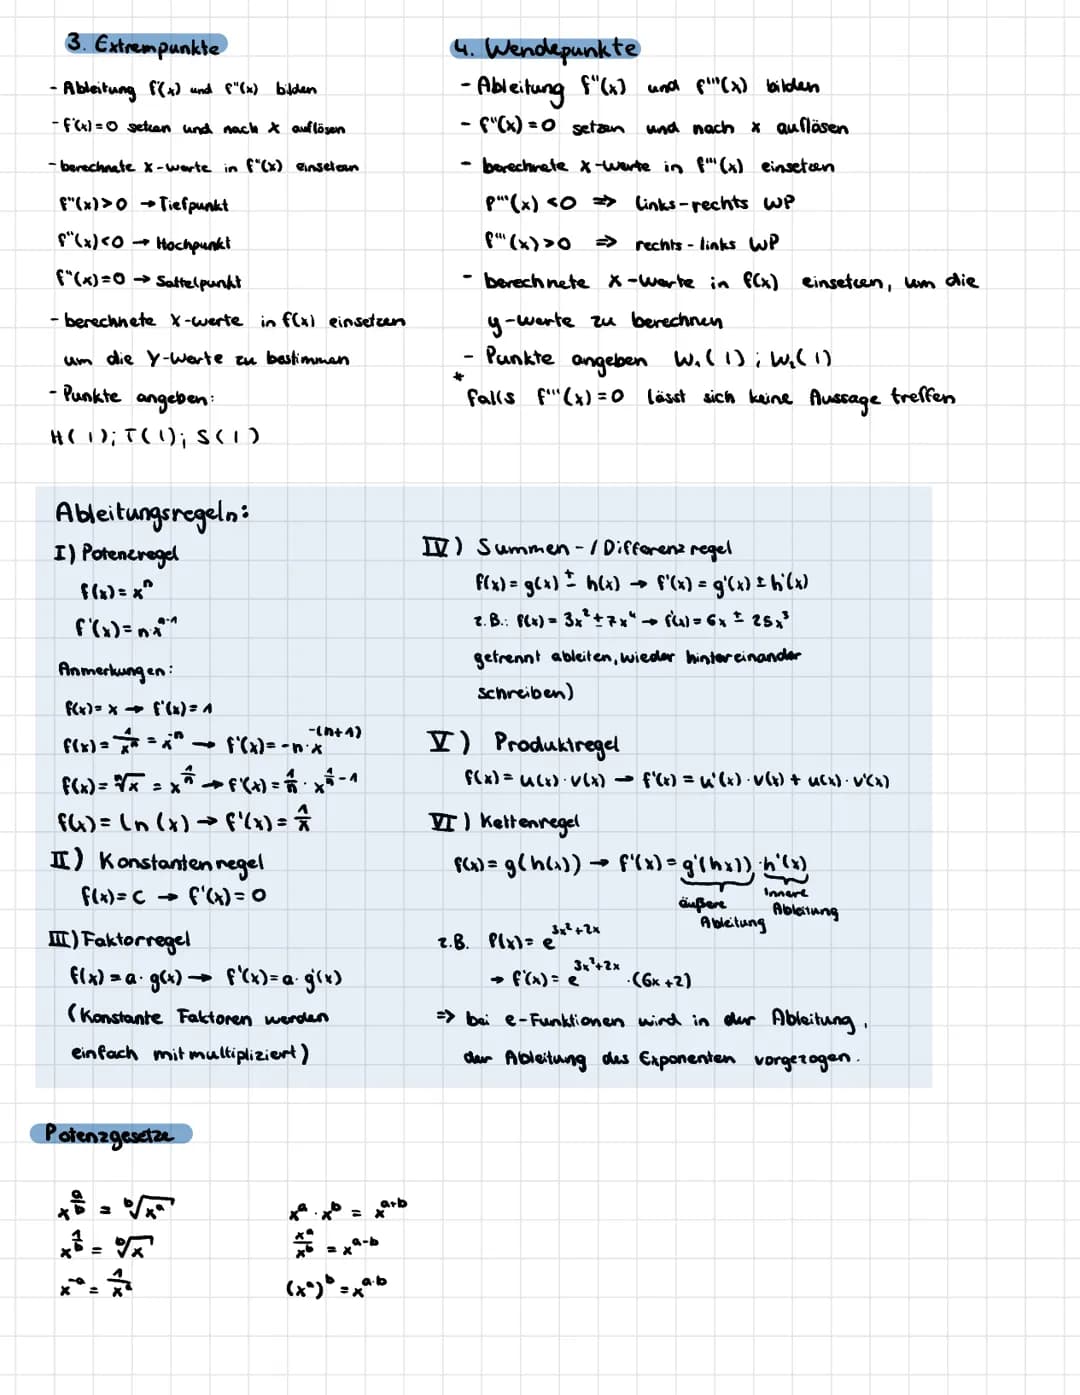 3. Extrempunkte
- Ableitung f'(x) und f''(x) bilden
- f'(x) = 0 setzen und nach x auflösen
- berechnete x-werte in f''(x) einsetzen
f''(x) > 0 → Tiefpunkt
f''(x) < 0 → Hochpunkt
f''(x) = 0 → Sattelpunkt
- berechnete x-werte in f(x) einsetzen
um die Y-Werte zu bestimmen
- Punkte angeben:
H( | ); T( | ); S( | )
4. Wendepunkte
- Ableitung f''(x) und f'''(x) bilden
- f''(x) = 0 setzen und nach x auflösen
- berechnete x-werte in f'''(x) einsetzen
f'''(x) < 0 ⇒ links-rechts WP
f'''(x) > 0 ⇒ rechts-links WP
- berechnete x-werte in f(x) einsetzen, um die
y-werte zu berechnen
- Punkte angeben W₁( | ) ; W₂( | )
* falls f'''(x) = 0 lässt sich keine Aussage treffen
Ableitungsregeln:
I) Potenzregel
f(x) = xⁿ
f'(x) = n·xⁿ⁻¹
Anmerkungen:
f(x) = x → f'(x) = 1
f(x) = 1/xⁿ = x⁻ⁿ → f'(x) = -n·x^-(n+1)
f(x) = ⁿ√x = x^(1/n) → f'(x) = 1/n · x^(1/n - 1)
f(x) = ln(x) → f'(x) = 1/x
II) Konstantenregel
f(x) = c → f'(x) = 0
III) Faktorregel
f(x) = a · g(x) → f'(x) = a · g'(x)
(Konstante Faktoren werden
einfach mitmultipliziert)
IV) Summen-/Differenzregel
f(x) = g(x) ± h(x) → f'(x) = g'(x) ± h'(x)
z.B.: f(x) = 3x² ± 7x⁴ → f'(x) = 6x ± 28x³
getrennt ableiten, wieder hintereinander
schreiben)
V) Produktregel
f(x) = u(x) · v(x) → f'(x) = u'(x) · v(x) + u(x) · v'(x)
VI) Kettenregel
f(x) = g(h(x)) → f'(x) = g'(hx)) · h'(x)
äußere Ableitung
Innere Ableitung
z.B. f(x) = e^(3x²+2x)
→ f'(x) = e^(3x²+2x) · (6x+2)
⇒ bei e-Funktionen wird in der Ableitung,
der Ableitung des Exponenten vorgezogen.
Potenzgesetze
x^(a/b) = ᵇ√xᵃ
x^(1/b) = ᵇ√x
x⁻ᵃ = 1/xᵃ
xᵃ · xᵇ = xᵃ⁺ᵇ
xᵃ/xᵇ = xᵃ⁻ᵇ
(xᵃ)ᵇ = x^(a·b)